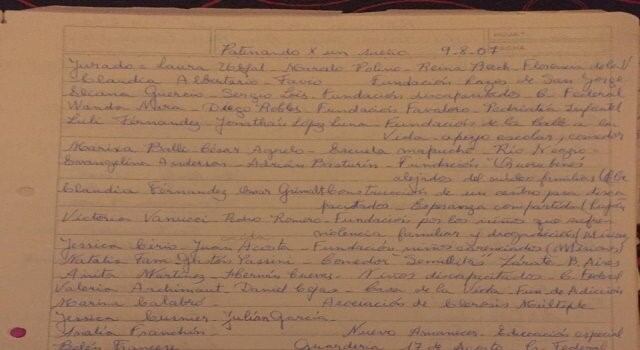 Patinando x un sueño 9-8-07
Jurado = Laura Ubfal - Marcelo Polino - Reina Reech - Florencia de la V
Claudia Albertario - Favio Fundación Lazos de San Jorge
Eliana Guercio - Sergio Lois - Fundación discapacitados C. Federal
Wanda Nara - Diego Robles - Fundación Favaloro - Pediatría Infantil
Luli Fernandez - Jonathan López Luna - Fundación de la Calle a la
Vida - apoyo escolar y comedor
Marixa Balli César Agudo - Escuela mapuche - Río Negro -
Evangelina Anderson - Adrián Fundación Querubines
alejados del núcleo familiar
Claudia Fernández Cesar Construcción de un centro para disca
pacitados - Esperanza compartida
Victoria Vanucci - Pedro Romero - Fundación por los niños que sufren
violencia familiar y drogadicción
Jessica Cirio Juan Acosta - Fundación niños carenciados (Misiones)
Natalia Fassi - Gustavo Lessini - Comedor "Semillitas" Zárate B. Aires
Anita Martínez - Hernán Cueves - Niños discapacitados C. Federal
Valeria Archimaut - Daniel - Casa de la Vida - Fun. de Adicción
Marina Calabró - Asociación de Clerosis Múltiple
Jessica - Julián García -
Analía Franchín Nuevo Amanecer - Educación especial
Belén Francese Guardería 17 de Agosto C. Federal